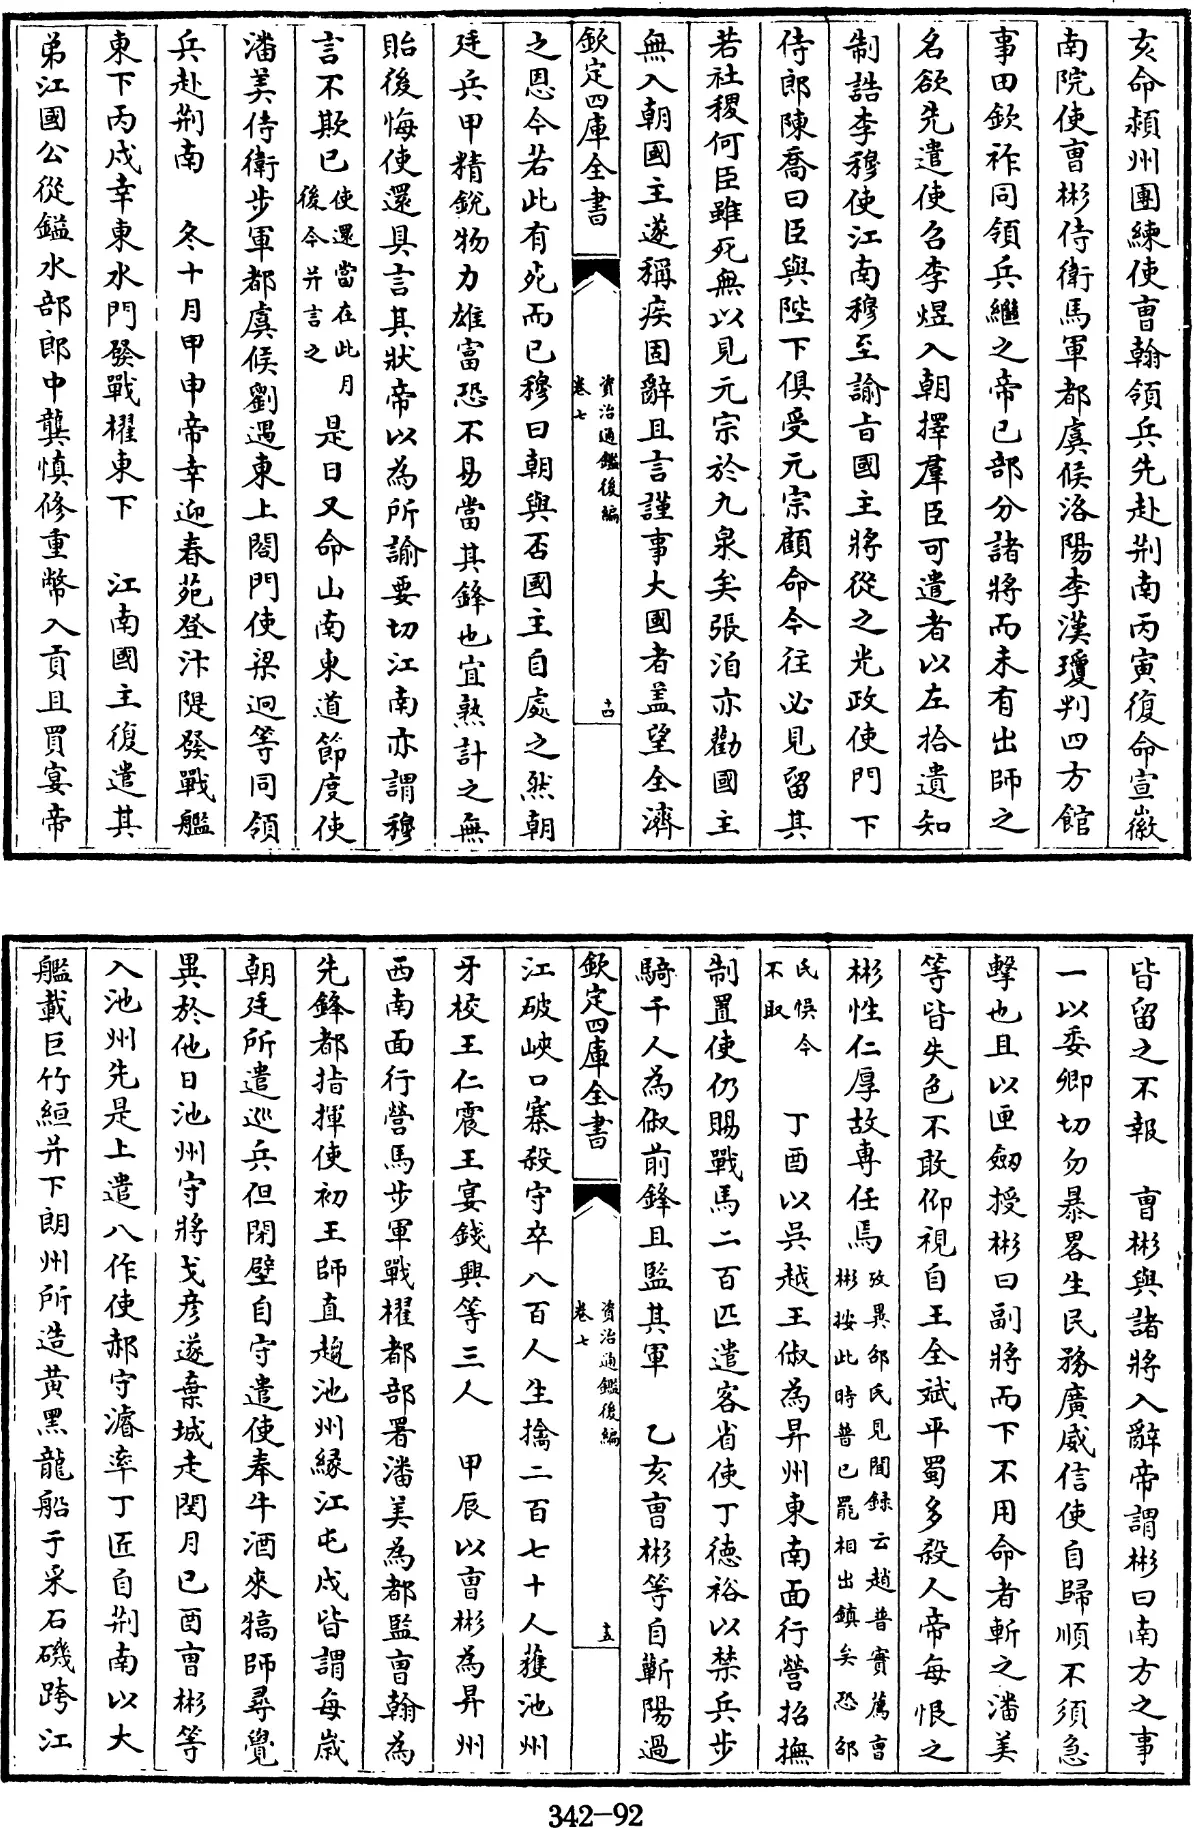 亥命潁州團練使曺翰領兵先赴荆南丙寅復命宣徽
南院使曺彬侍衛馬軍都虞候洛陽李漢瓊判四方館
事田欽祚同領兵繼之帝已部分諸將而未有出師之
名欲先遣使召李煜入朝擇羣臣可遣者以左拾遺知
制誥李穆使江南穆至諭旨國主將從之光政使門下
侍郎陳喬曰臣與陛下俱受元宗顧命今往必見留其
若社稷何臣雖死無以見元宗於九泉矣張洎亦勸國主
無入朝國主遂稱疾固辭且言謹事大國者盖望全濟
欽定四庫全書
資治通鑑後編
卷七
十四
之恩今若此有死而已穆曰朝與否國主自處之然朝
廷兵甲精銳物力雄富恐不易當其鋒也宜熟計之無
貽後悔使還具言其狀帝以為所諭要切江南亦謂穆
言不欺已使還當在此月後今并言之是日又命山南東道節度使
潘美侍衛步軍都虞候劉遇東上閤門使梁迥等同領
兵赴荆南 冬十月甲申帝幸迎春苑登汴隄發戰艦
東下丙戌幸東水門發戰櫂東下 江南國主復遣其
弟江國公從鎰水部郎中龔慎修重幣入貢且買宴帝
皆留之不報 曺彬與諸將入辭帝謂彬曰南方之事
一以委卿切勿暴畧生民務廣威信使自歸順不須急
擊也且以匣劒授彬曰副將而下不用命者斬之潘美
等皆失色不敢仰視自王全斌平蜀多殺人帝每恨之
彬性仁厚故専任焉攷異邵氏見聞録云趙普實薦曺彬按此時普已罷相出鎮矣恐邵
氏悞今不取 丁酉以吳越王俶為昇州東南面行營招撫
制置使仍賜戰馬二百匹遣客省使丁德裕以禁兵步
騎千人為俶前鋒且監其軍 乙亥曺彬等自蘄陽過
欽定四庫全書
資治通鑑後編
卷七
十五
江破峽口寨殺守卒八百人生擒二百七十人獲池州
牙校王仁震王宴錢興等三人 甲辰以曺彬為昇州
西南面行營馬步軍戰櫂都部署潘美為都監曺翰為
先鋒都指揮使初王師直趨池州緣江屯戍皆謂每歳
朝廷所遣巡兵但閉壁自守遣使奉牛酒來犒師尋覺
異於他日池州守將戈彦遂棄城走閏月己酉曺彬等
入池州先是上遣八作使郝守濬率丁匠自荆南以大
艦載巨竹絙并下朗州所造黄黑龍船于采石磯跨江
342-92